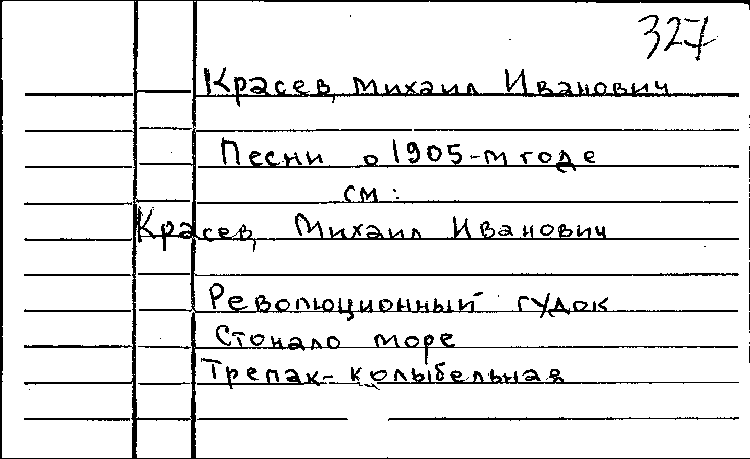 327
Красев, Михаил Иванович
Песни о 1905-м годе
см:
Красев, Михаил Иванович
Революционный гудок
Стонало море
Трепак-колыбельная